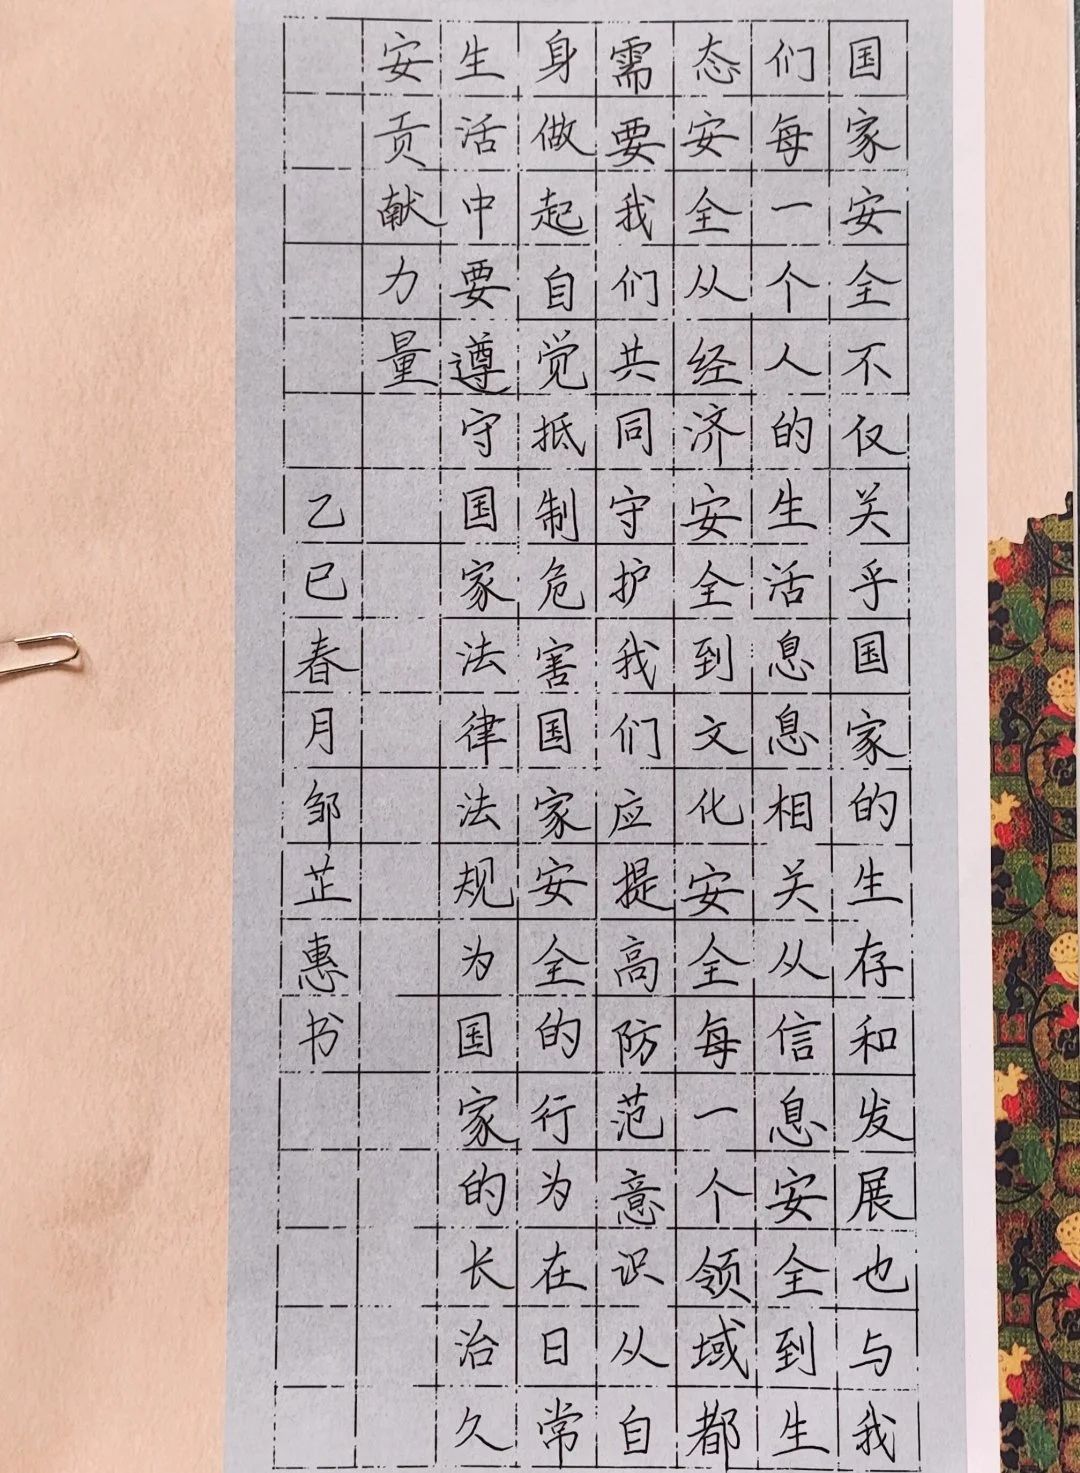 国家安全不仅关乎国家的生存和发展也与我
们每一个人的生活息息相关从信息安全到生
态安全从经济安全到文化安全每一个领域都
需要我们共同守护我们应提高防范意识从自
身做起自觉抵制危害国家安全的行为在日常
生活中要遵守国家法律法规为国家的长治久
安贡献力量
乙巳春月邹芷惠书